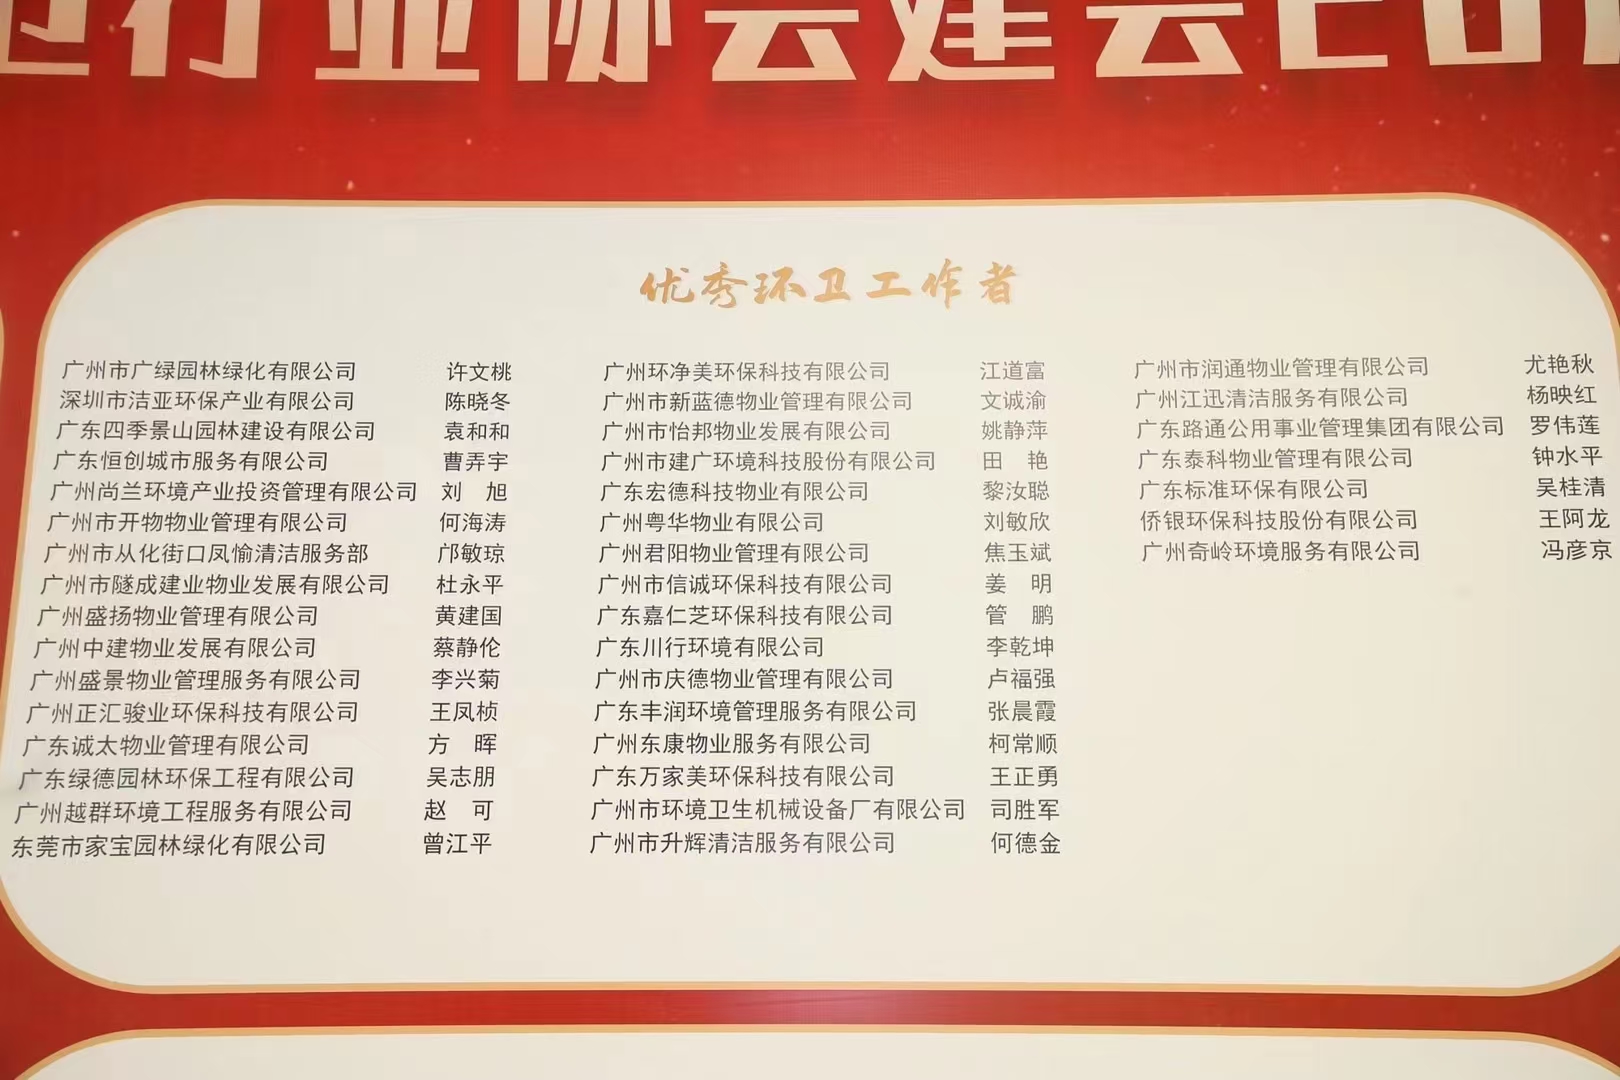 卫行业协会建会20
优秀环卫工作者
广州市广绿园林绿化有限公司 许文桃
深圳市洁亚环保产业有限公司 陈晓冬
广东四季景山园林建设有限公司 袁和和
广东恒创城市服务有限公司 曹弄宇
广州尚兰环境产业投资管理有限公司 刘 旭
广州市开物物业管理有限公司 何海涛
广州市从化街口凤愉清洁服务部 邝敏琼
广州市隧成建业物业发展有限公司 杜永平
广州盛扬物业管理有限公司 黄建国
广州中建物业发展有限公司 蔡静伦
广州盛景物业管理服务有限公司 李兴菊
广州正汇骏业环保科技有限公司 王凤桢
广东诚太物业管理有限公司 方 晖
广东绿德园林环保工程有限公司 吴志朋
广州越群环境工程服务有限公司 赵 可
东莞市家宝园林绿化有限公司 曾江平
广州环净美环保科技有限公司 江道富
广州市新蓝德物业管理有限公司 文诚渝
广州市怡邦物业发展有限公司 姚静萍
广州市建广环境科技股份有限公司 田 艳
广东宏德科技物业有限公司 黎汝聪
广州粤华物业有限公司 刘敏欣
广州君阳物业管理有限公司 焦玉斌
广州市信诚环保科技有限公司 姜 明
广东嘉仁芝环保科技有限公司 管 鹏
广东川行环境有限公司 李乾坤
广州市庆德物业管理有限公司 卢福强
广东丰润环境管理服务有限公司 张晨霞
广州东康物业服务有限公司 柯常顺
广东万家美环保科技有限公司 王正勇
广州市环境卫生机械设备厂有限公司 司胜军
广州市升辉清洁服务有限公司 何德金
广州市润通物业管理有限公司 尤艳秋
广州江迅清洁服务有限公司 杨映红
广东路通公用事业管理集团有限公司 罗伟莲
广东泰科物业管理有限公司 钟水平
广东标准环保有限公司 吴桂清
侨银环保科技股份有限公司 王阿龙
广州奇岭环境服务有限公司 冯彦京